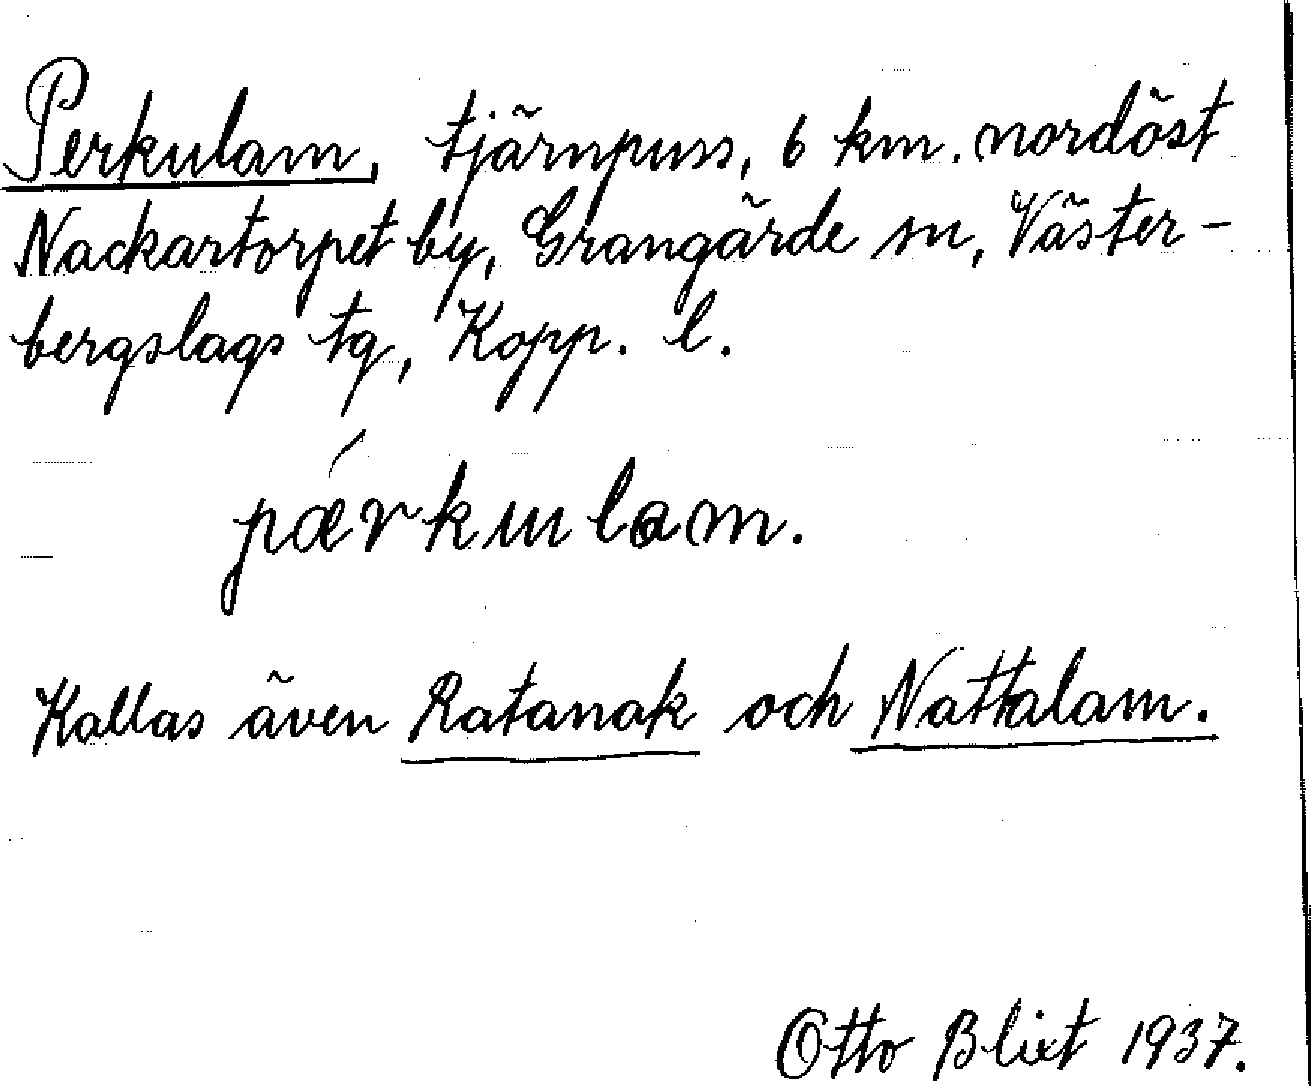 Perkulam, tjärnpuss, 6 km. nordöst
Nackartorpet by, Grangärde sn, Väster-
bergslags tg, Kopp. l.
pǽrkulam.
Kallas även Ratanak och Nattalam.
Otto Blixt 1937.